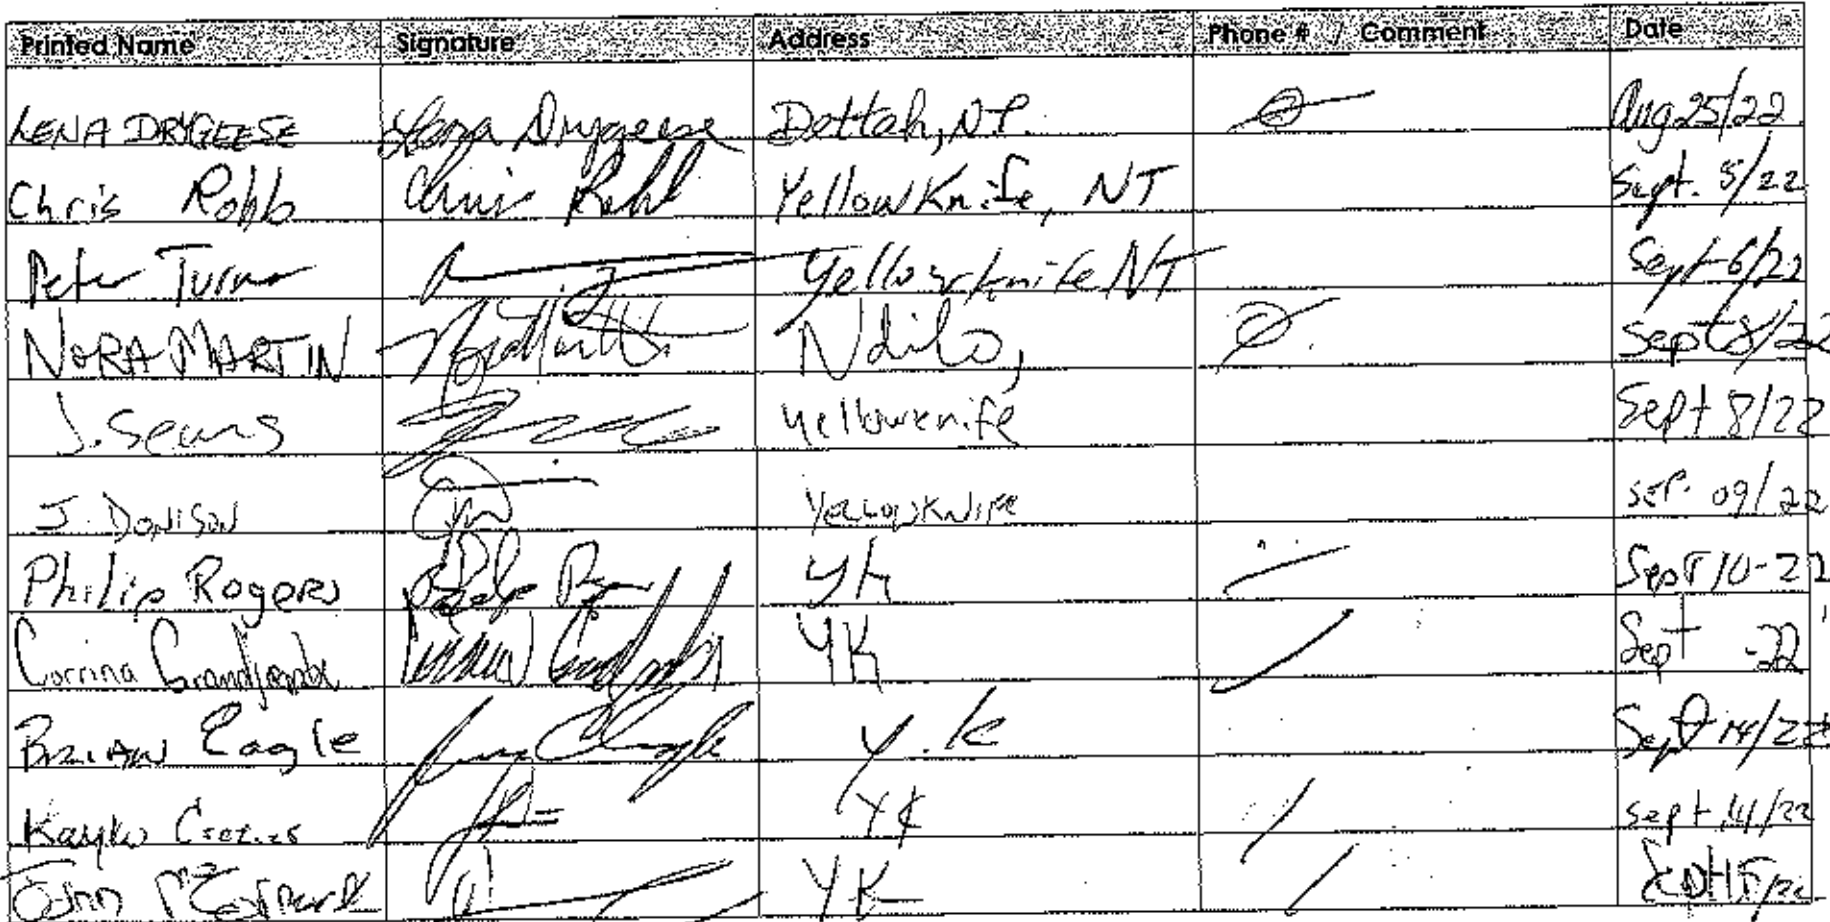 Printed Name Signature Address Phone # / Comment Date
LENA DRYGEESE Lena Drygeese Dettah, NT. Aug 25/22
Chris Robb Chris Robb Yellowknife, NT Sept. 5/22
Peter Turner Yellowknife NT Sept 6/22
NORA MARTIN Nora Martin Ndilo, Sept 8/22
J. Sears Yellowknife Sept 8/22
J. DONISON YELLOWKNIFE SEP. 09/22
Philip Rogers YK Sept 10-22
Corrina YK Sept -22
BRIAN Eagle Y.K Sept 14/22
Kayko YK Sept 14/22
John YK Sept 15/22